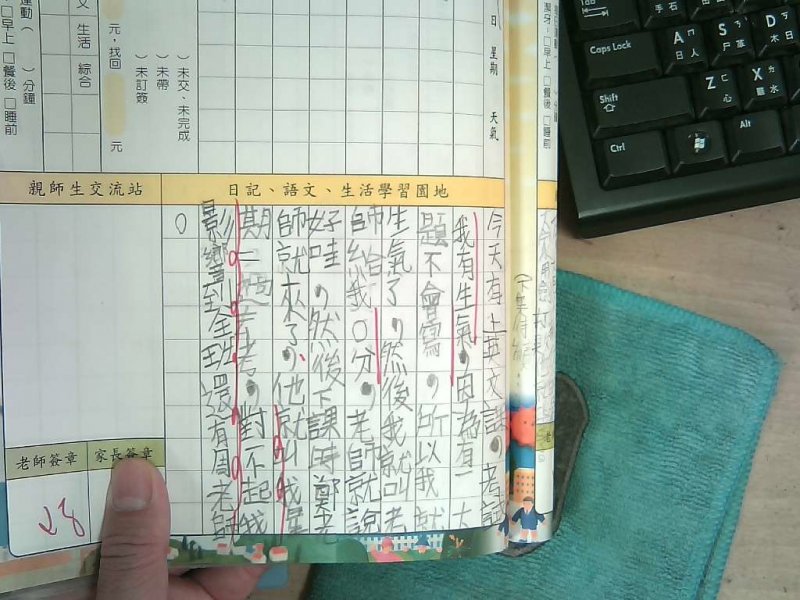 運動（ ）分鐘
□早上 □餐後 □睡前
文 生活 綜合
元，找回 元
）未交、未完成
）未帶
）未訂簽
日 星期 天氣
潔牙，□早上 □餐後 □睡前
親師生交流站
日記、語文、生活學習園地
今天有上英文課。考試
我有生氣，因為有一大
題不會寫，所以我就
生氣了，然後我就叫老
師給我0分，老師就說
好哇，然後下課時鄭老
師就來了，他就叫我星
期一過去考，對不起我
影響到全班還有周老師
。
老師簽章
家長簽章
Caps Lock
Shift
Ctrl
Alt
A ㄇ 日 人
S ㄋ 尸 革
D ㄎ 木 日
Z ㄈ 心
X ㄌ 難 水
手 石